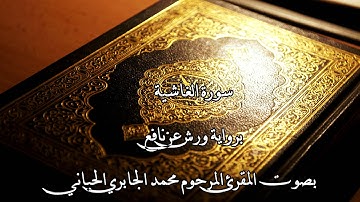 سورة الغاشية
برواية ورش عن نافع
بصوت المقرئ المرحوم محمد الجابري الحياني